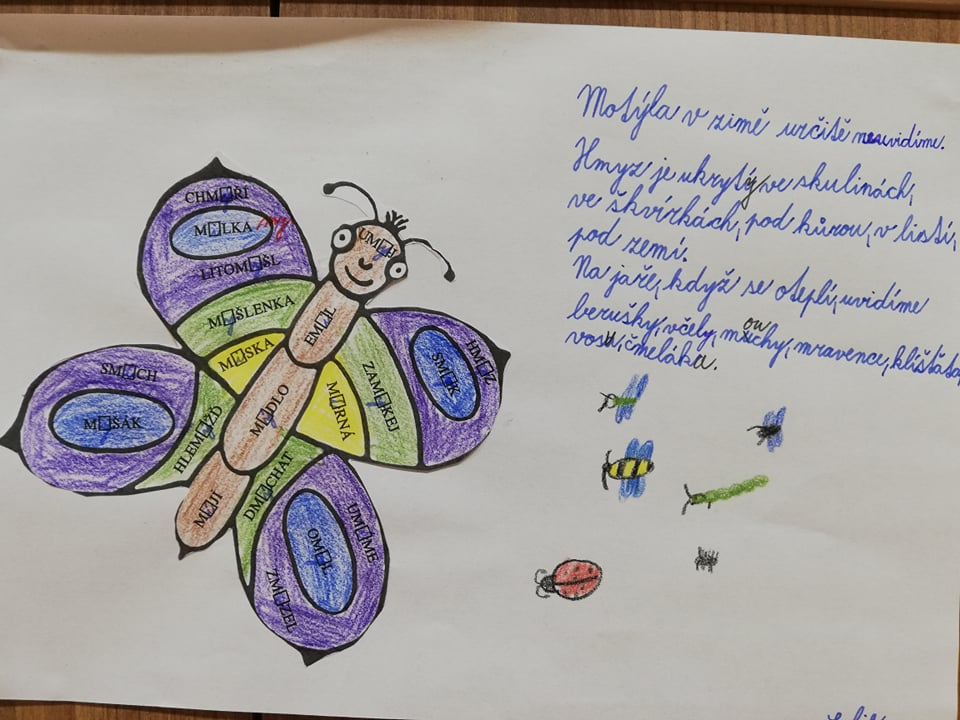 CHM□ŘÍ
M□LKA
LITOM□ŠL
M□ŠLENKA
M□SKA
UM□T
EM□L
HM□Z
SM□K
ZAM□KEJ
M□RNÁ
SM□CH
M□ŠÁK
HLEM□ŽĎ
M□DLO
M□JÍ
DM□CHAT
UM□ME
OM□L
ZM□ZEL
Motýla v zimě určitě neuvidíme.
Hmyz je ukrytý ve skulinách,
ve škvírkách, pod kůrou, v listí,
pod zemí.
Na jaře, když se oteplí, uvidíme
berušky, včely, mouchy, mravence, klíšťata,
vosu, čmeláka.